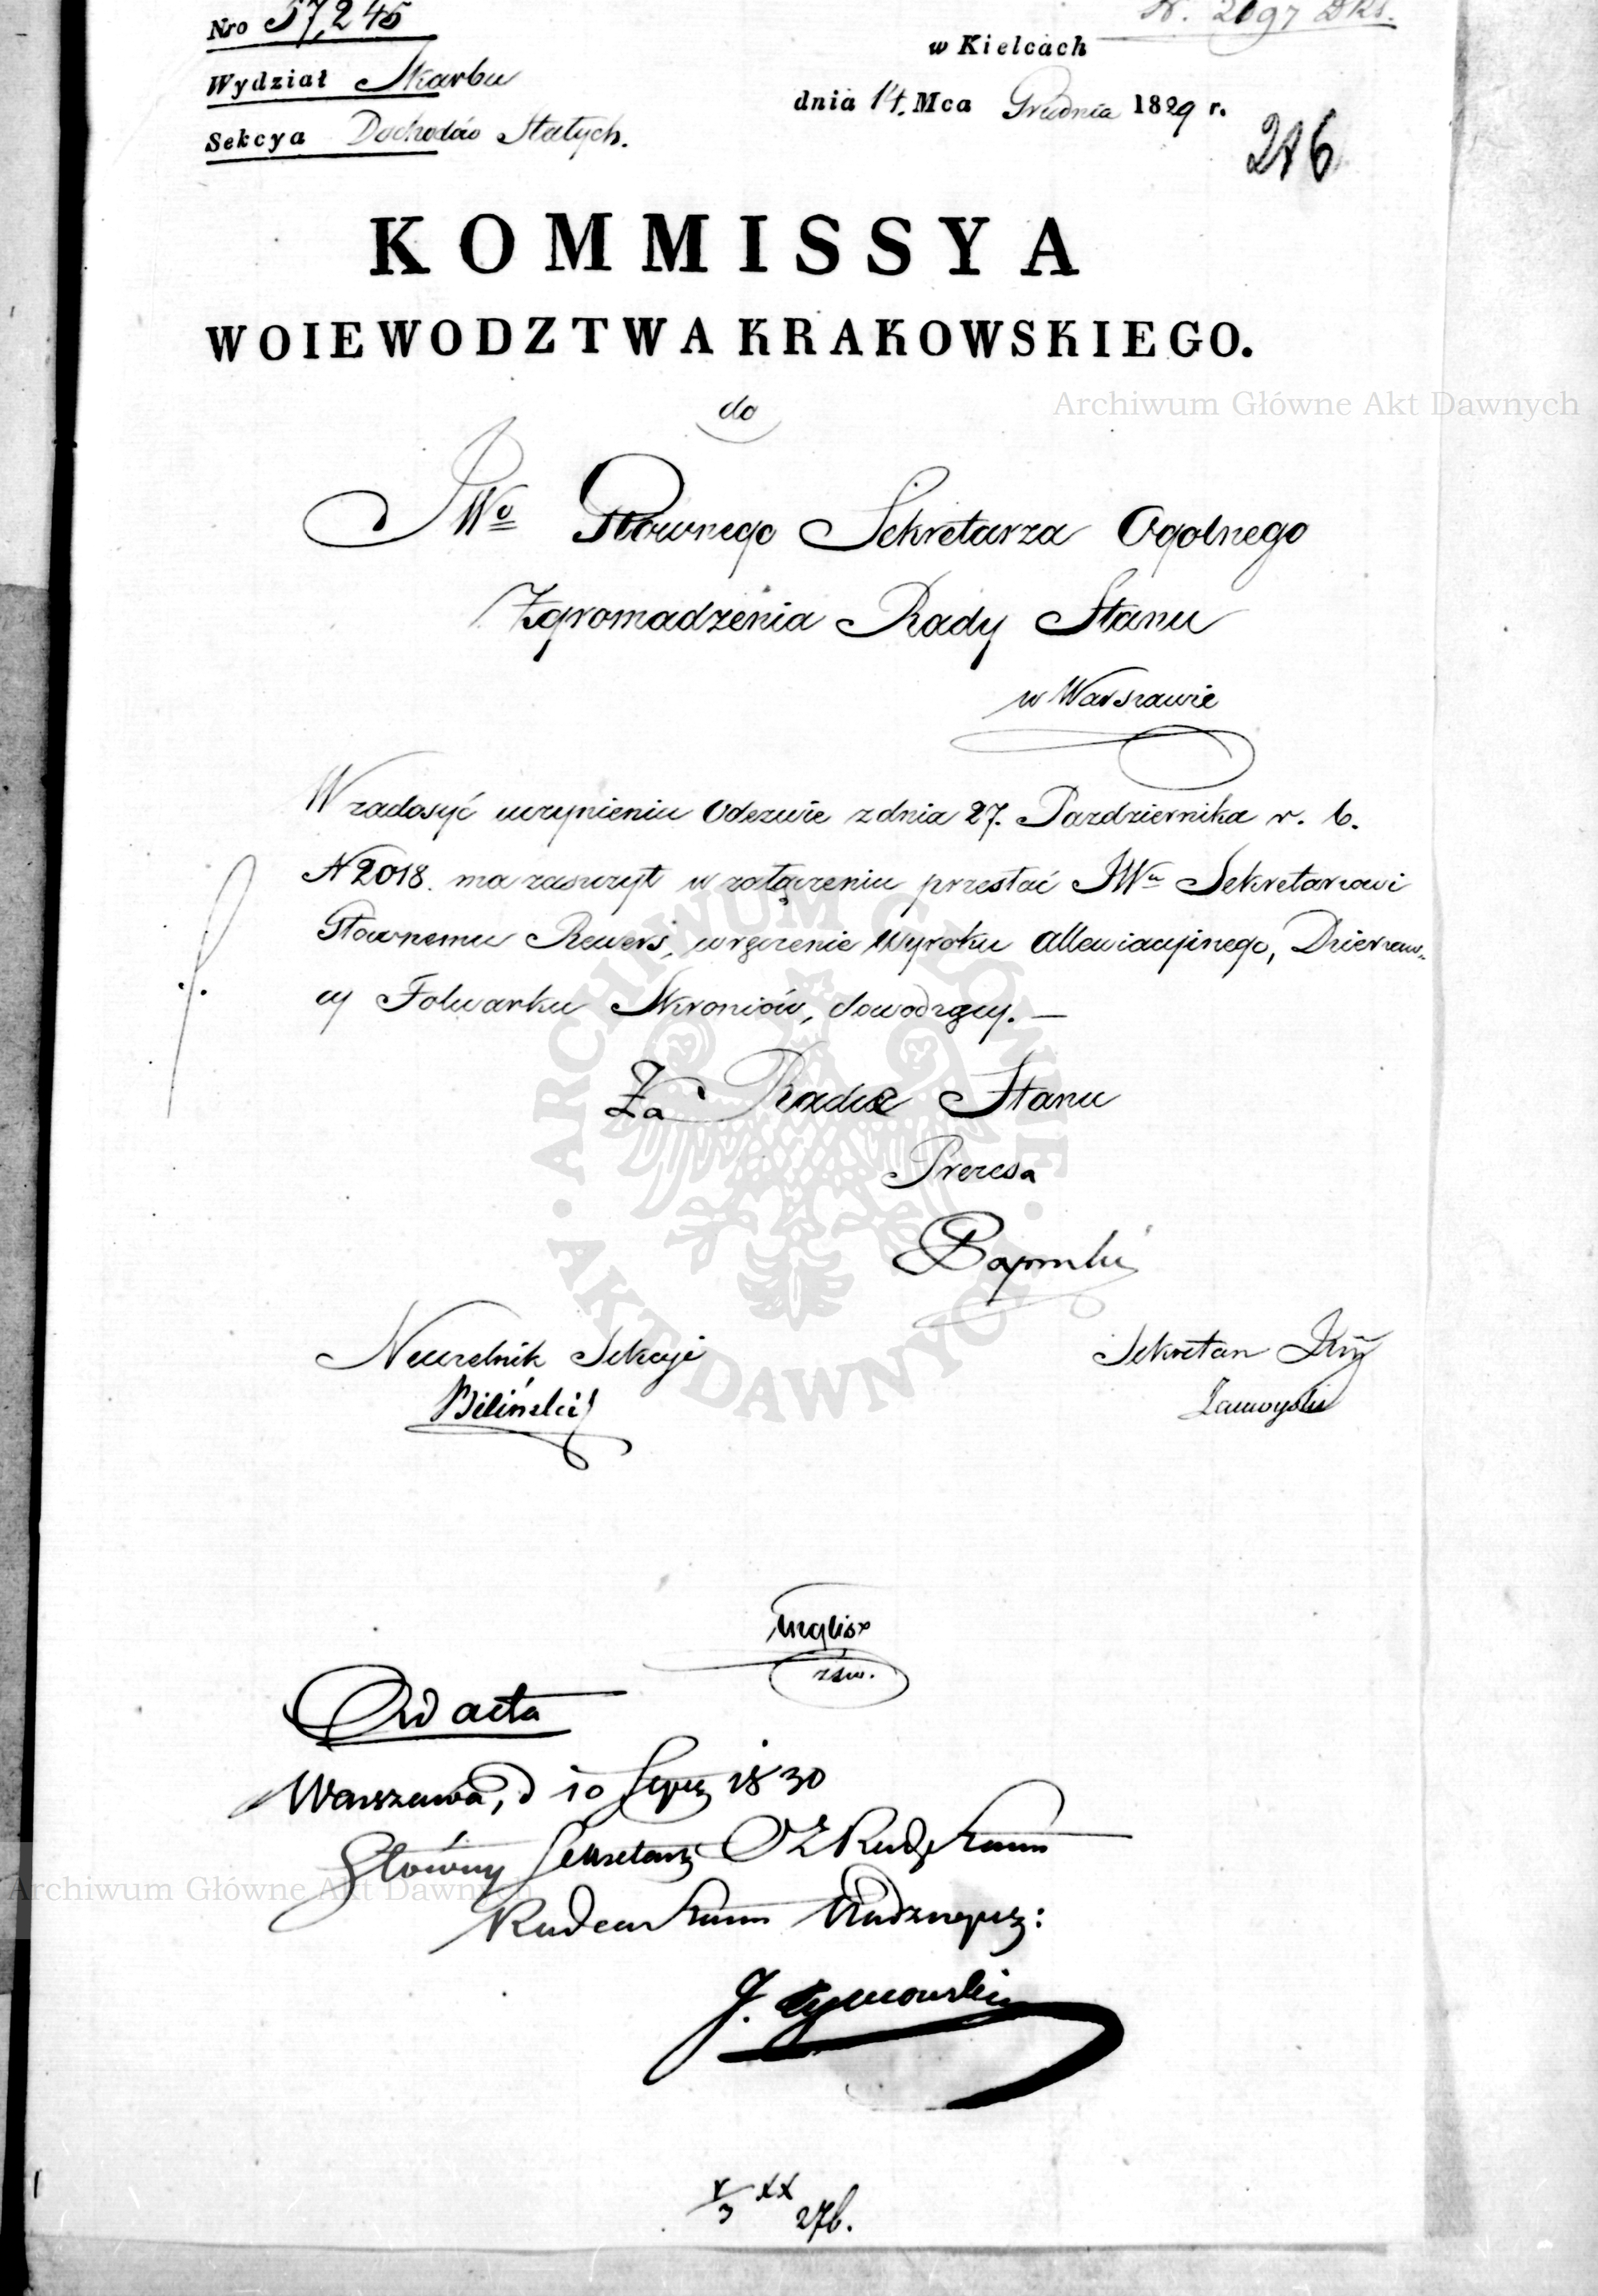 Nro 57,245
Wydział Skarbu
Sekcya Dochodów Stałych.
N. 2097 DRS.
w Kielcach
dnia 14. Mca Grudnia 1829 r.
216
KOMMISSYA
WOIEWODZTWA KRAKOWSKIEGO.
do
JWo Głównego Sekretarza Ogolnego
Zgromadzenia Rady Stanu
w Warszawie
W zadosyć uczynieniu Odezwie z dnia 27. Pazdziernika r. b.
N 2018. ma zaszczyt w załączeniu przesłać JWu Sekretarzowi
Głównemu Rewers, wręczenie Wyroku allewiacyinego, Dzierzaw-
cy Folwarku Skroniów, dowodzący. —
Za Radcę Stanu
Prezesa
Naczelnik Sekcyi
Biliński
Sekretarz Jlny
Zamoyski
zsw.
Ad acta
Warszawa, d 10 1830
Główny Sekretarz OZ Rady Stanu
Radca Stanu Nadzwycz:
J. Tymowski
276.
Archiwum Główne Akt Dawnych
ARCHIWUM GŁÓWNE AKT DAWNYCH
Archiwum Główne Akt Dawnych